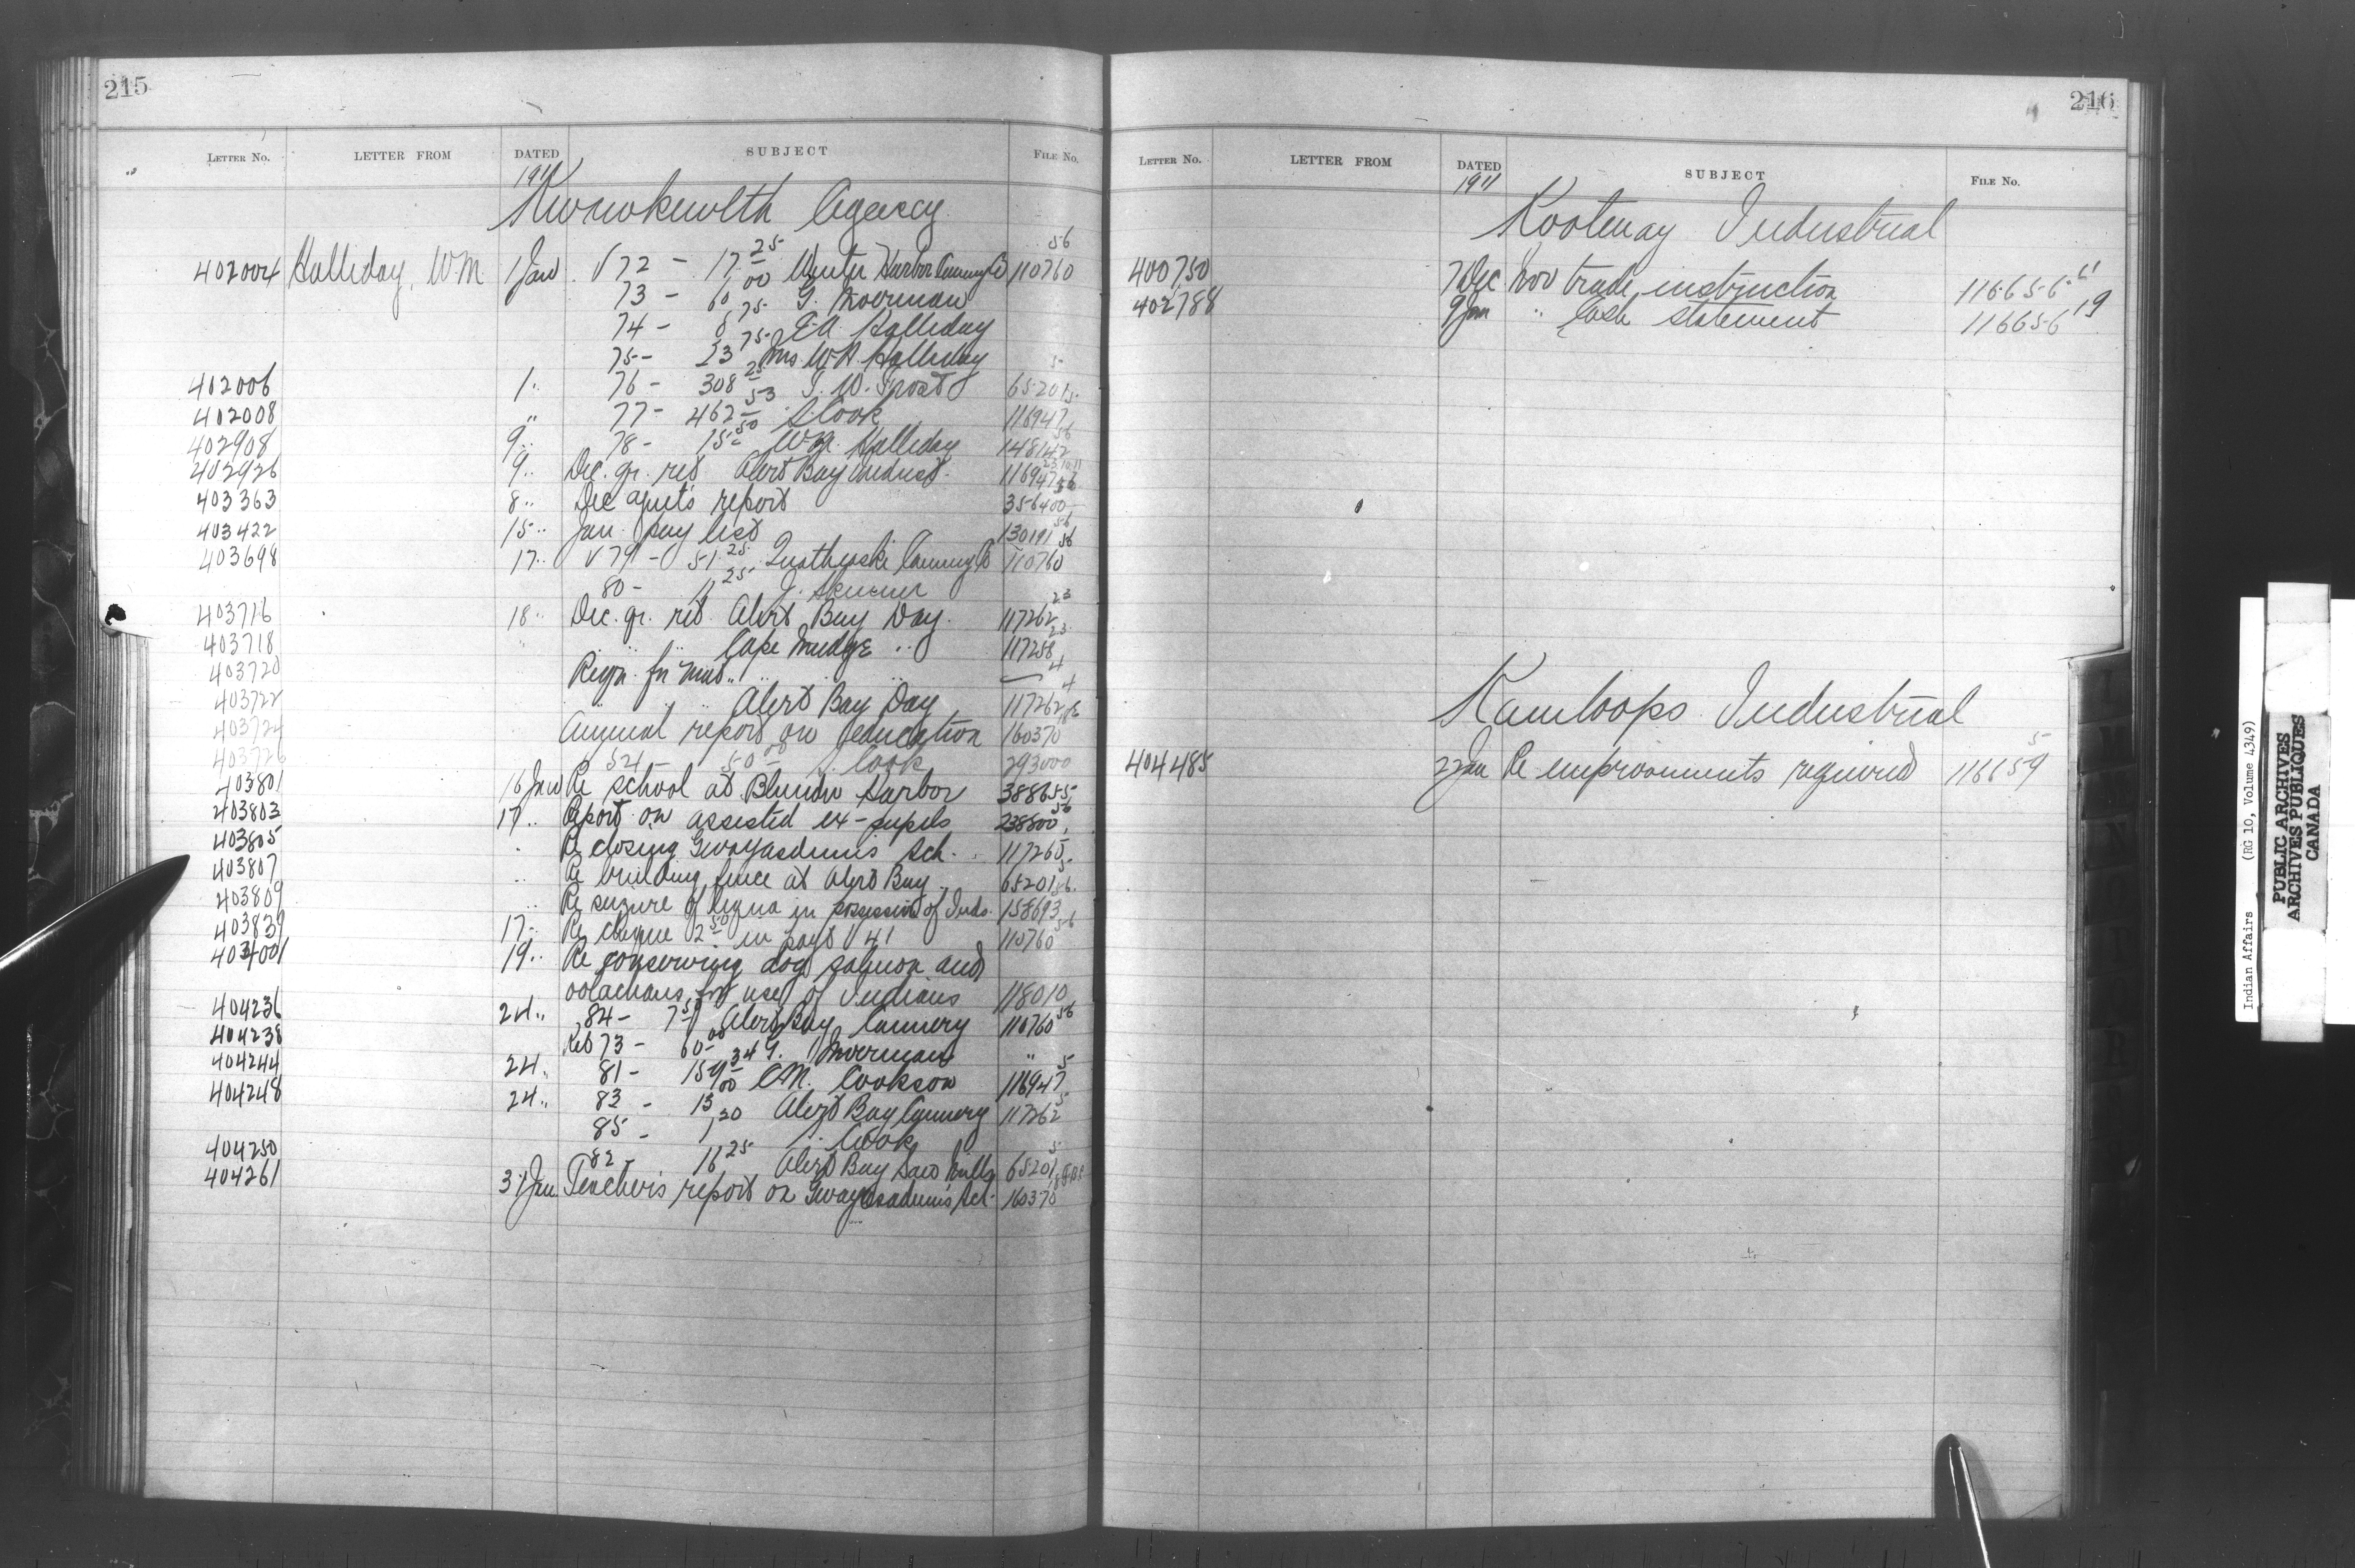 215
LETTER NO. LETTER FROM DATED SUBJECT FILE No.
1911
Kwawkewlth Agency
402004 Halliday, W.M. 1 Jan V 72 - 17 25 Winter Harbor Canning Co 110760 56
73 - 60 00 G. Moerman
74 - 8 75 E.A. Halliday
75 - 23 75 Mrs W.A. Halliday
402006 1 " 76 - 308 25 S. W. Frost 65201 5
402008 " 77 - 462 53 A. Cook 116947 5
402908 9 " 78 - 15 50 W.M. Halliday 148142 56
402926 9 " Dec. qr. ret Alert Bay Indust. 116947
403363 8 " Dec agent's report 356400 56
403422 15 " Jan. pay list 130191 56
403698 17 " V 79 - 51 25 Quathiaski Canning Co 110760 56
80 - 11 25 J. Skinner
403716 18 " Dec. qr. ret. Alert Bay Day 117262 23
403718 " " " Cape Mudge " 117258 23
403720 Reqn. for mat " " 4
403722 " " " Alert Bay Day 117262 4
403724 Annual report on education 160370
403726 S. Cook 293000
403801 16 Jan Re school at Blunden Harbor 388655
403803 17 " Report on assisted ex-pupils 238800 56
403805 " Re closing Gwayasdums Sch. 117265
403807 " Re building fence at Alert Bay 65201 5
403809 " Re seizure of liquor in possession of Inds. 158693 56
403839 17 " Re cheque 2 50 in payt V 41 110760 56
19 " Re conserving dog salmon and
oolachans for use of Indians 118010
404236 24 " 84 - 7 50 Alert Bay Cannery 110760 56
404238 Ret 73 - 60 00 G. Moerman "
404244 24 " 81 - 159 34 C.M. Cookson 116947 5
404248 24 " 83 - 13 00 Alert Bay Cannery 117262 5
85 - Cook
404250 82 - 16 25 Alert Bay Saw Mills 65201 5
404261 31 Jan Teacher's report on Gwayasdums Sch. 160370
216
LETTER NO. LETTER FROM DATED SUBJECT FILE No.
1911
Kootenay Industrial
400750 7 Dec Nov trade instruction 116656 11
402788 9 Jan " Cash statement 116656 19
Kamloops Industrial
404485 22 Jan Re improvements required 116659 5
Indian Affairs (RG 10, Volume 4349)
PUBLIC ARCHIVES
ARCHIVES PUBLIQUES
CANADA